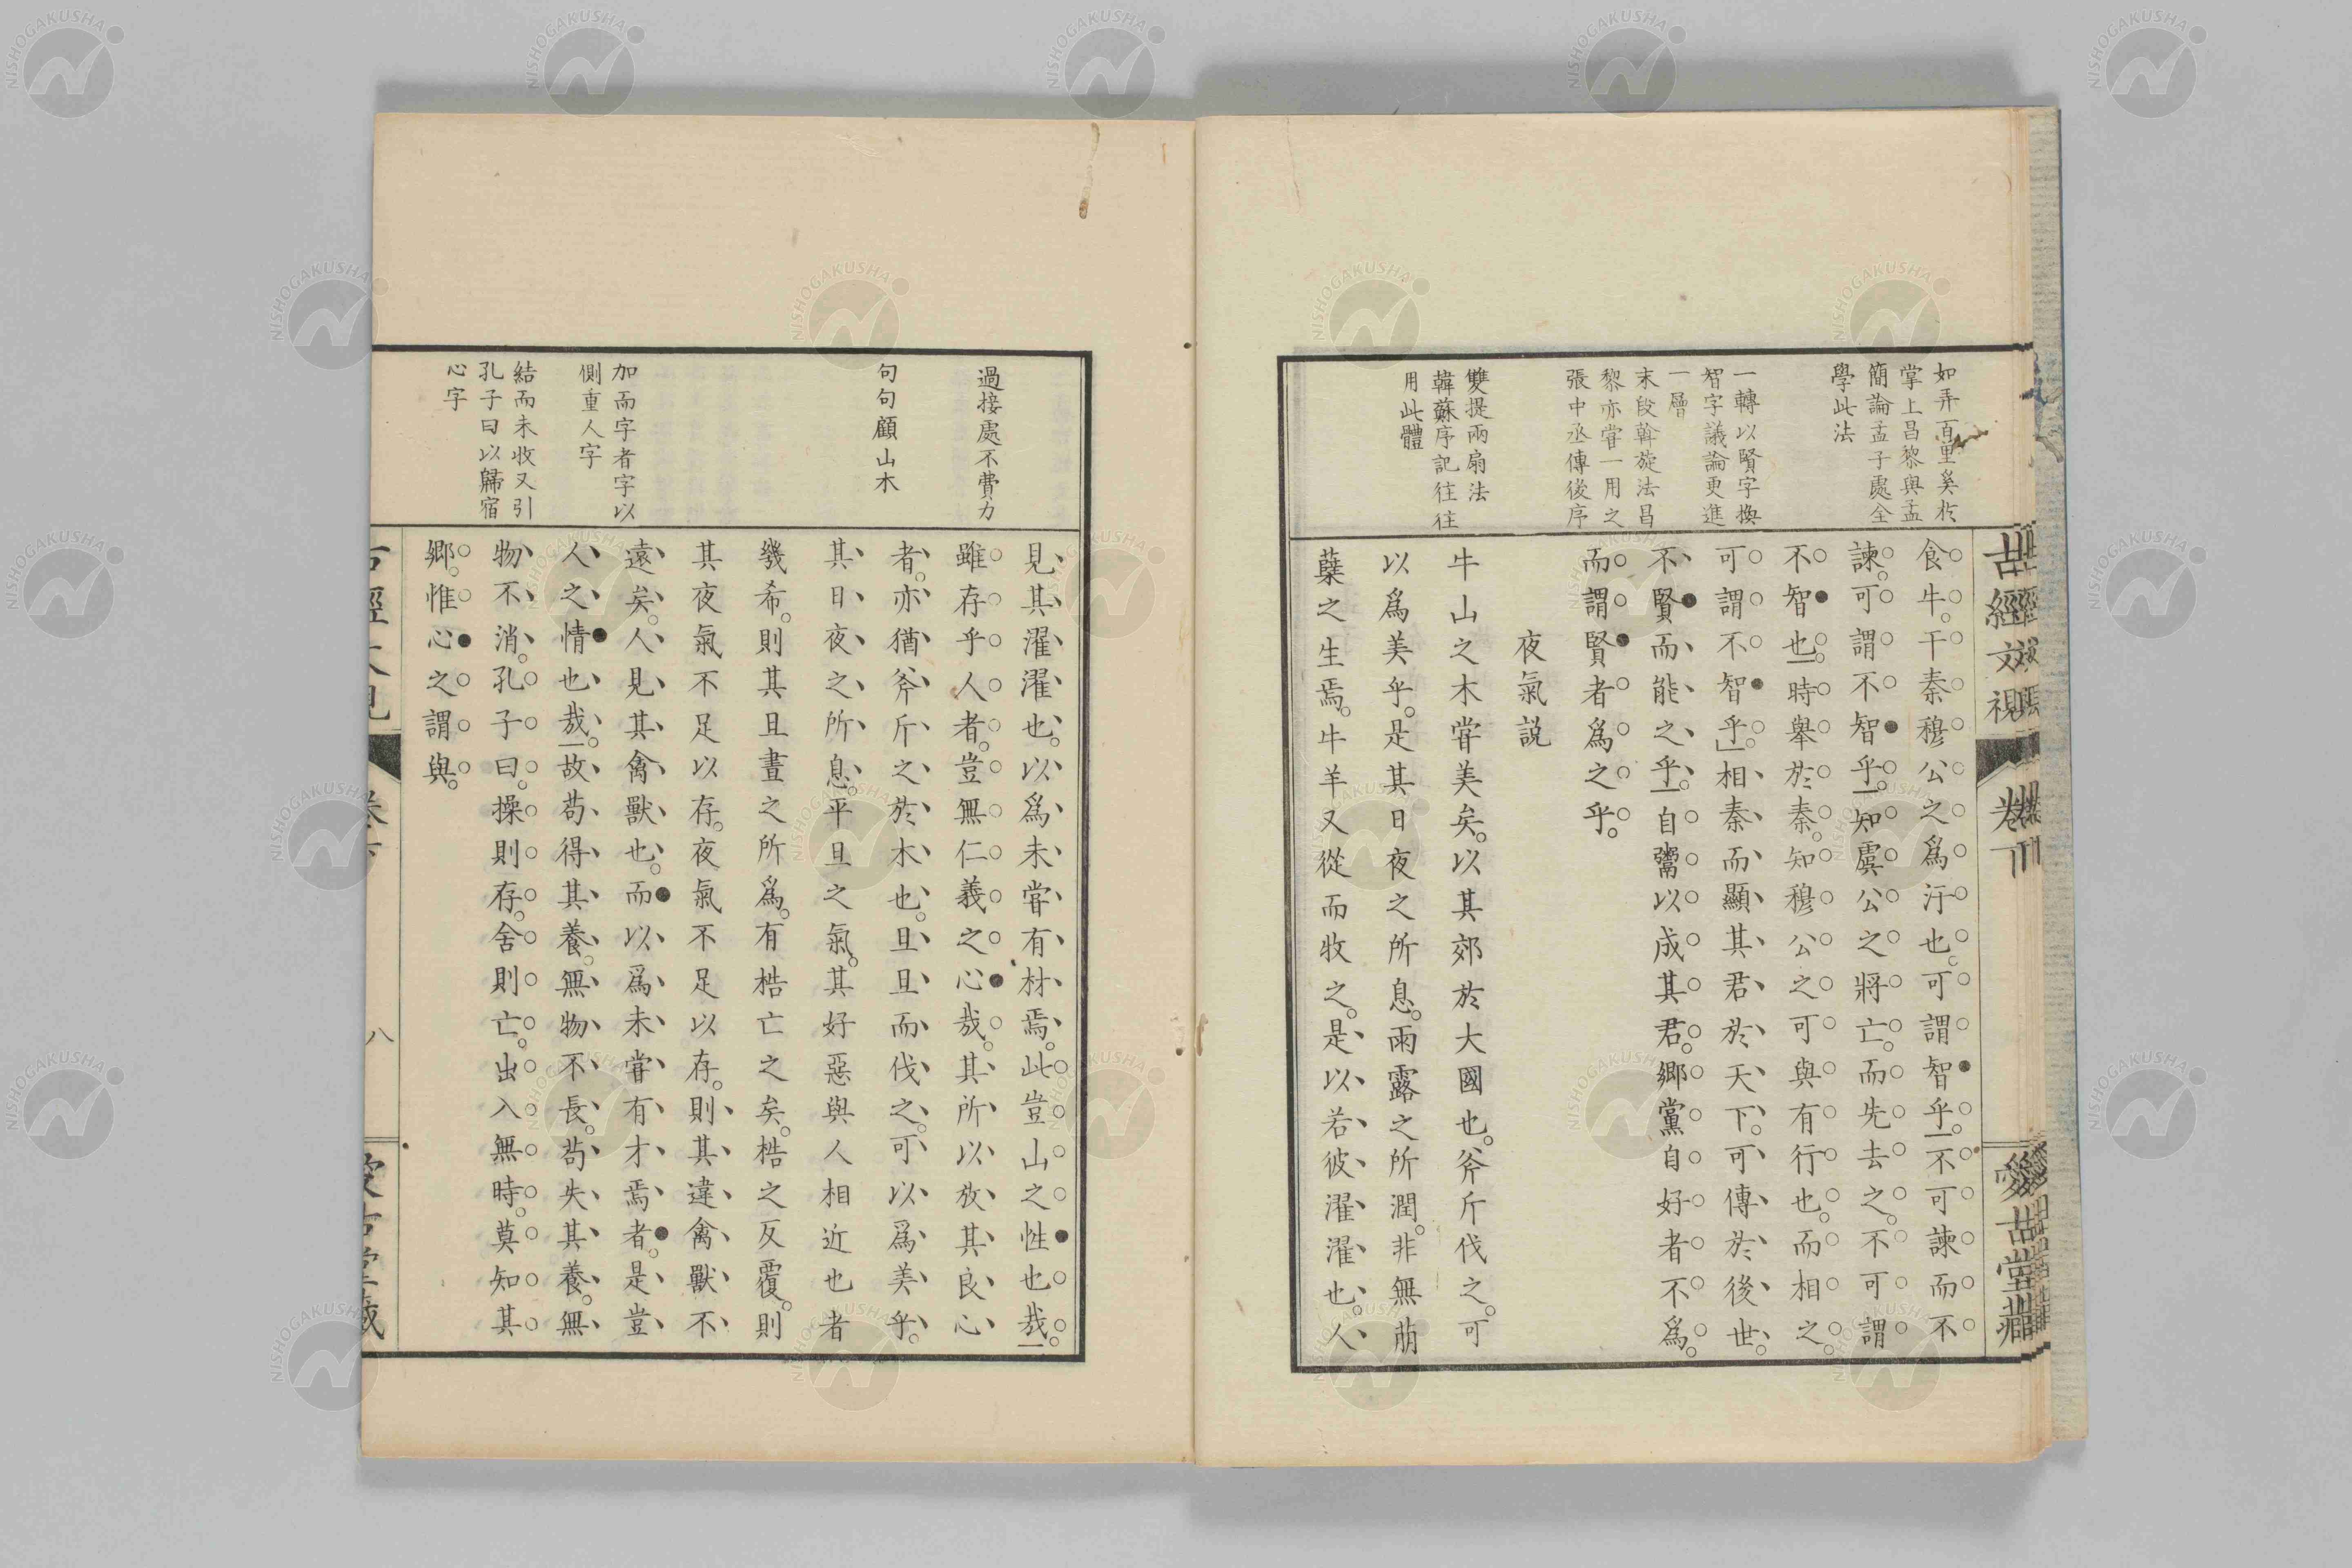 古經文視
卷下
愛古堂藏
如弄百里奚於
掌上昌黎與孟
簡論孟子處全
學此法
一轉以賢字換
智字議論更進
一層
末段斡旋法昌
黎亦甞一用之
張中丞傳後序
雙提兩扇法
韓蘇序記往往
用此體
食牛。干秦穆公之爲汙也。可謂智乎。不可諫而不
諫。可謂不智乎。知虞公之將亡。而先去之。不可謂
不智也。時舉於秦。知穆公之可與有行也。而相之。
可謂不智乎。」相秦而顯其君於天下。可傳於後世。
不賢而能之乎。自鬻以成其君。鄉黨自好者不爲。
而謂賢者爲之乎。
夜氣説
牛山之木甞美矣。以其郊於大國也。斧斤伐之。可
以爲美乎。是其日夜之所息。雨露之所潤。非無萠
蘖之生焉。牛羊又從而牧之。是以若彼濯濯也。人
過接處不費力
句句顧山木
加而字者字以
側重人字
結而未收又引
孔子曰以歸宿
心字
見其濯濯也。以爲未甞有材焉。此豈山之性也哉。
雖存乎人者。豈無仁義之心哉。其所以放其良心
者。亦猶斧斤之於木也。旦旦而伐之。可以爲美乎。
其日夜之所息。平旦之氣。其好惡與人相近也者
幾希。則其旦晝之所爲。有梏亡之矣。梏之反覆。則
其夜氣不足以存。夜氣不足以存。則其違禽獸不
遠矣。人見其禽獸也。而以爲未甞有才焉者。是豈
人之情也哉。故苟得其養。無物不長。苟失其養。無
物不消。孔子曰。操則存。舍則亡。出入無時。莫知其
鄉。惟心之謂與。
八
NISHOGAKUSHA